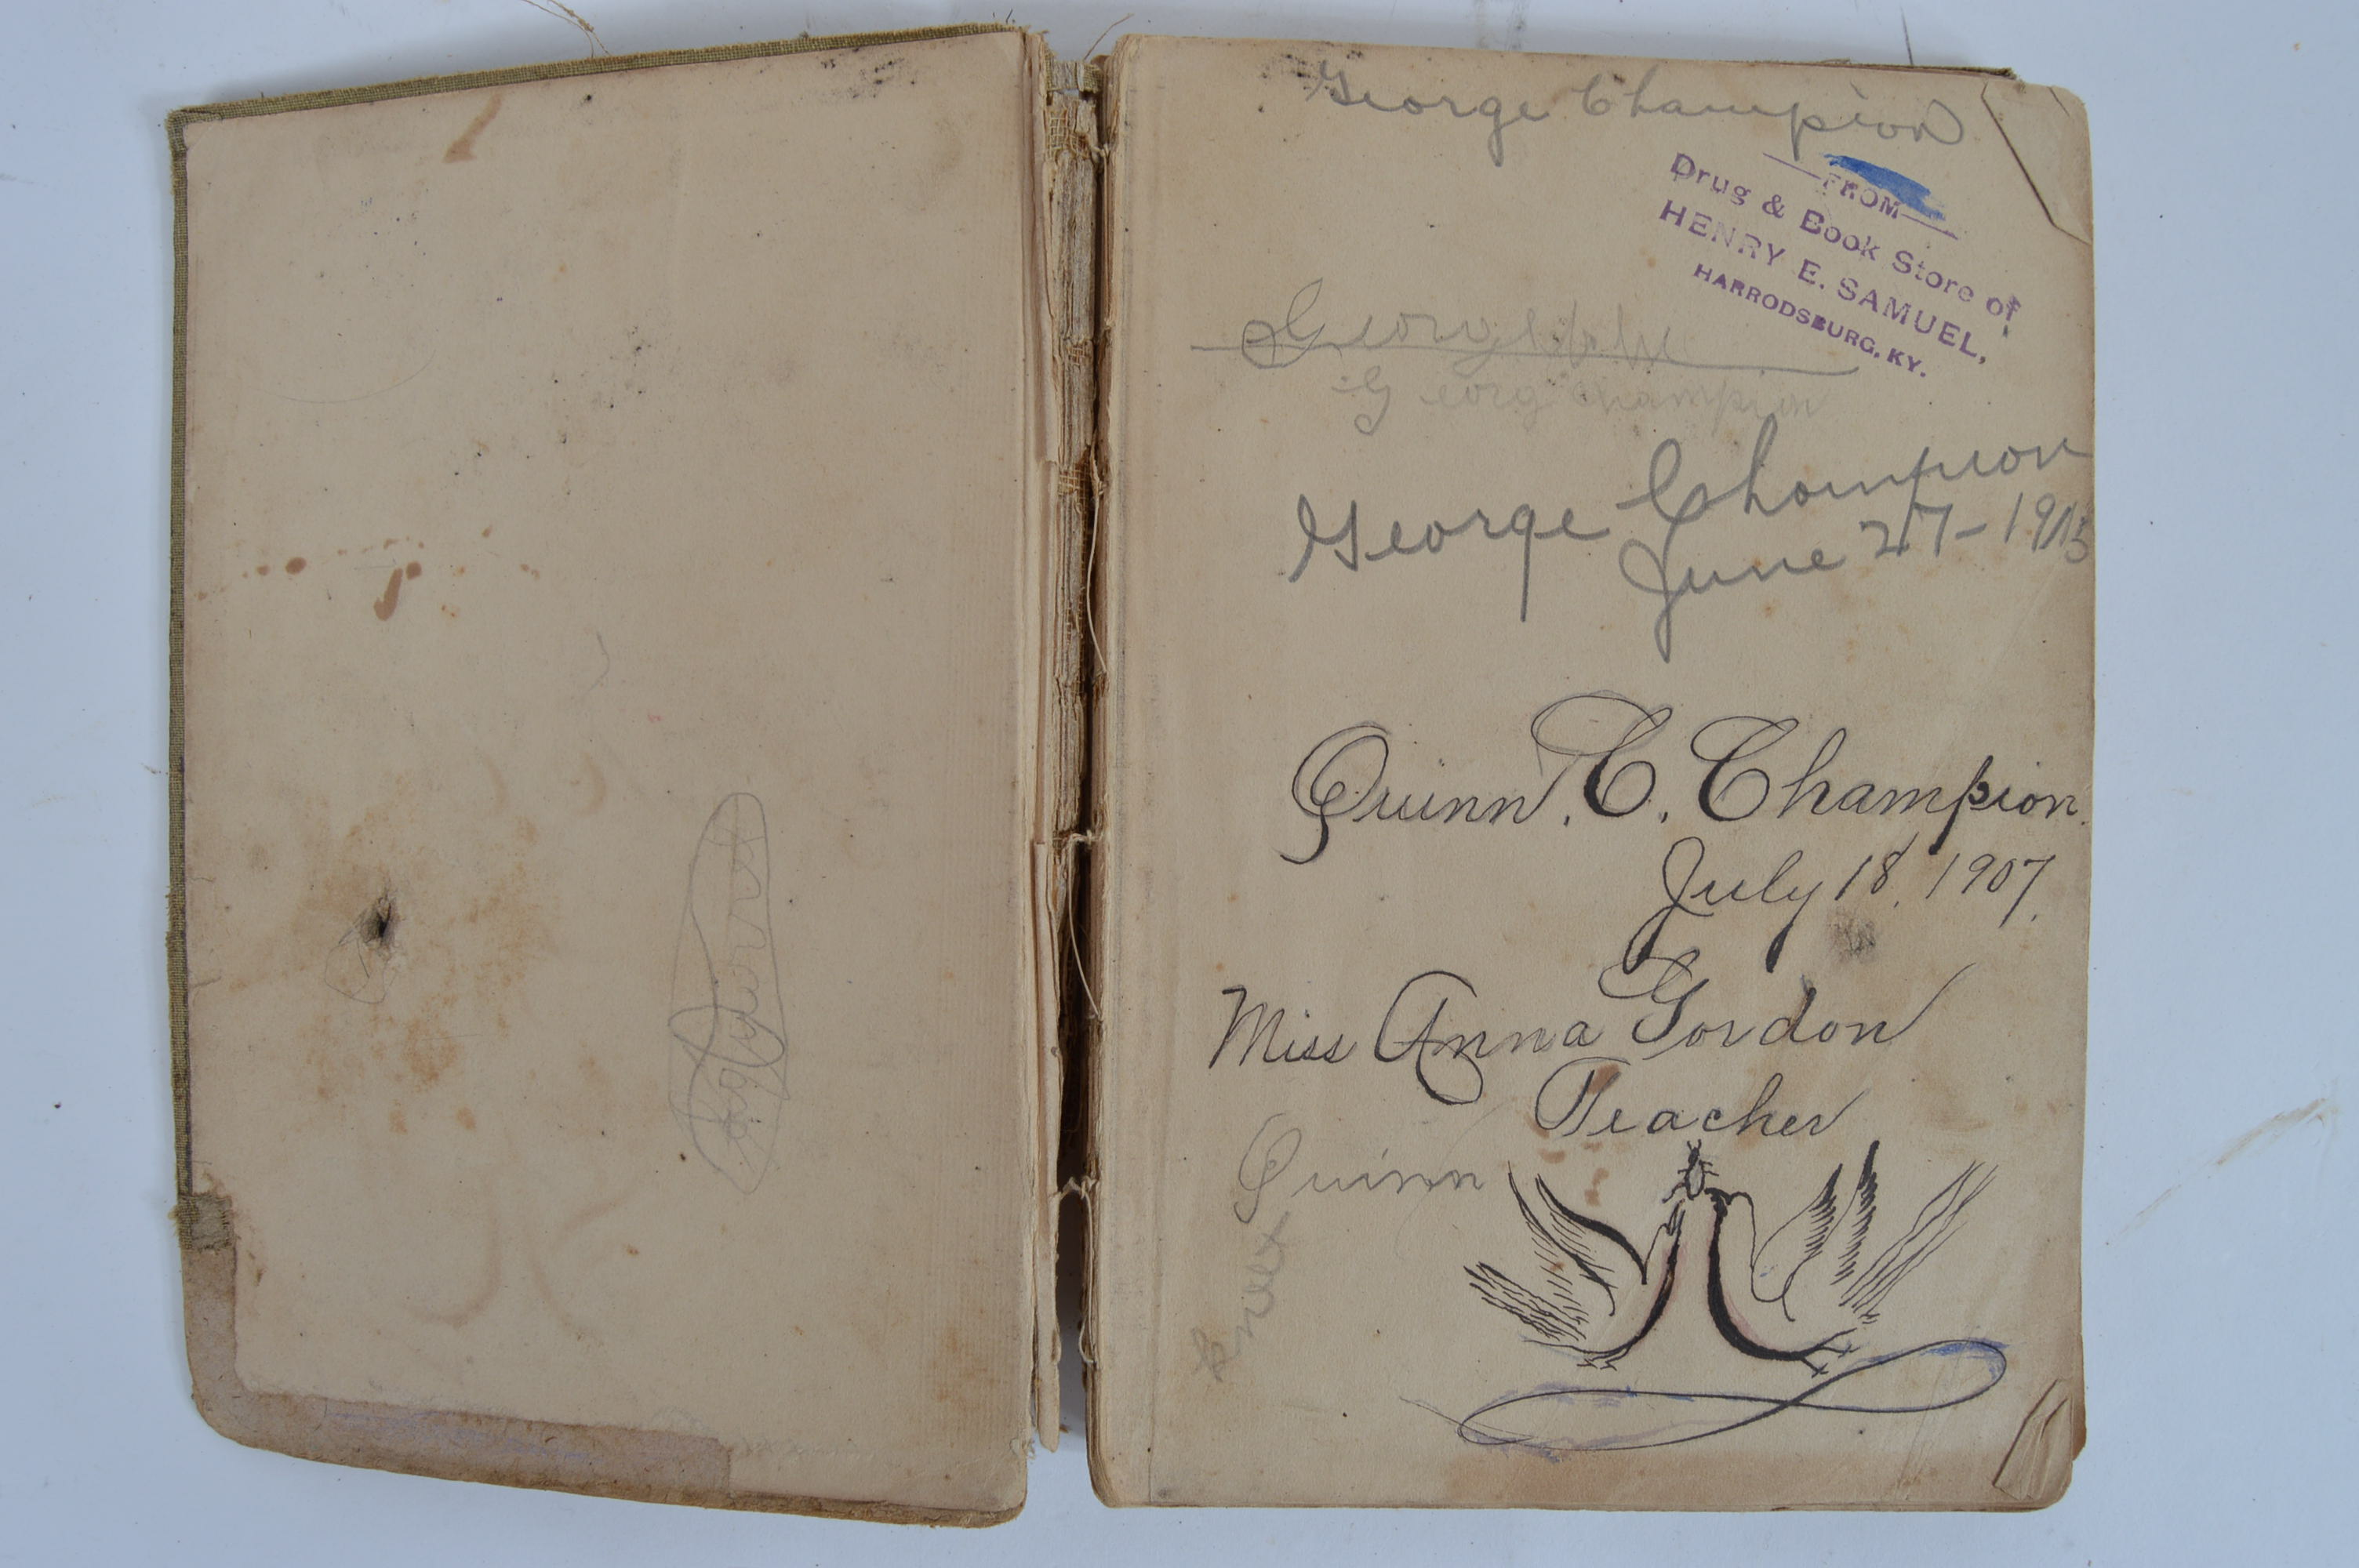 George Champion
FROM
Drug & Book Store of
HENRY E. SAMUEL,
HARRODSBURG, KY.
George
Georg Champion
George Champion
June 27-1915
Quinn. C. Champion.
July 18, 1907.
Miss Anna Gordon
Teacher
Quinn